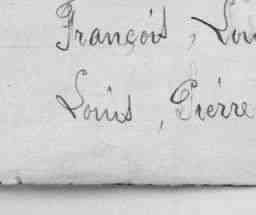 François, Lou
Louis, Pierre